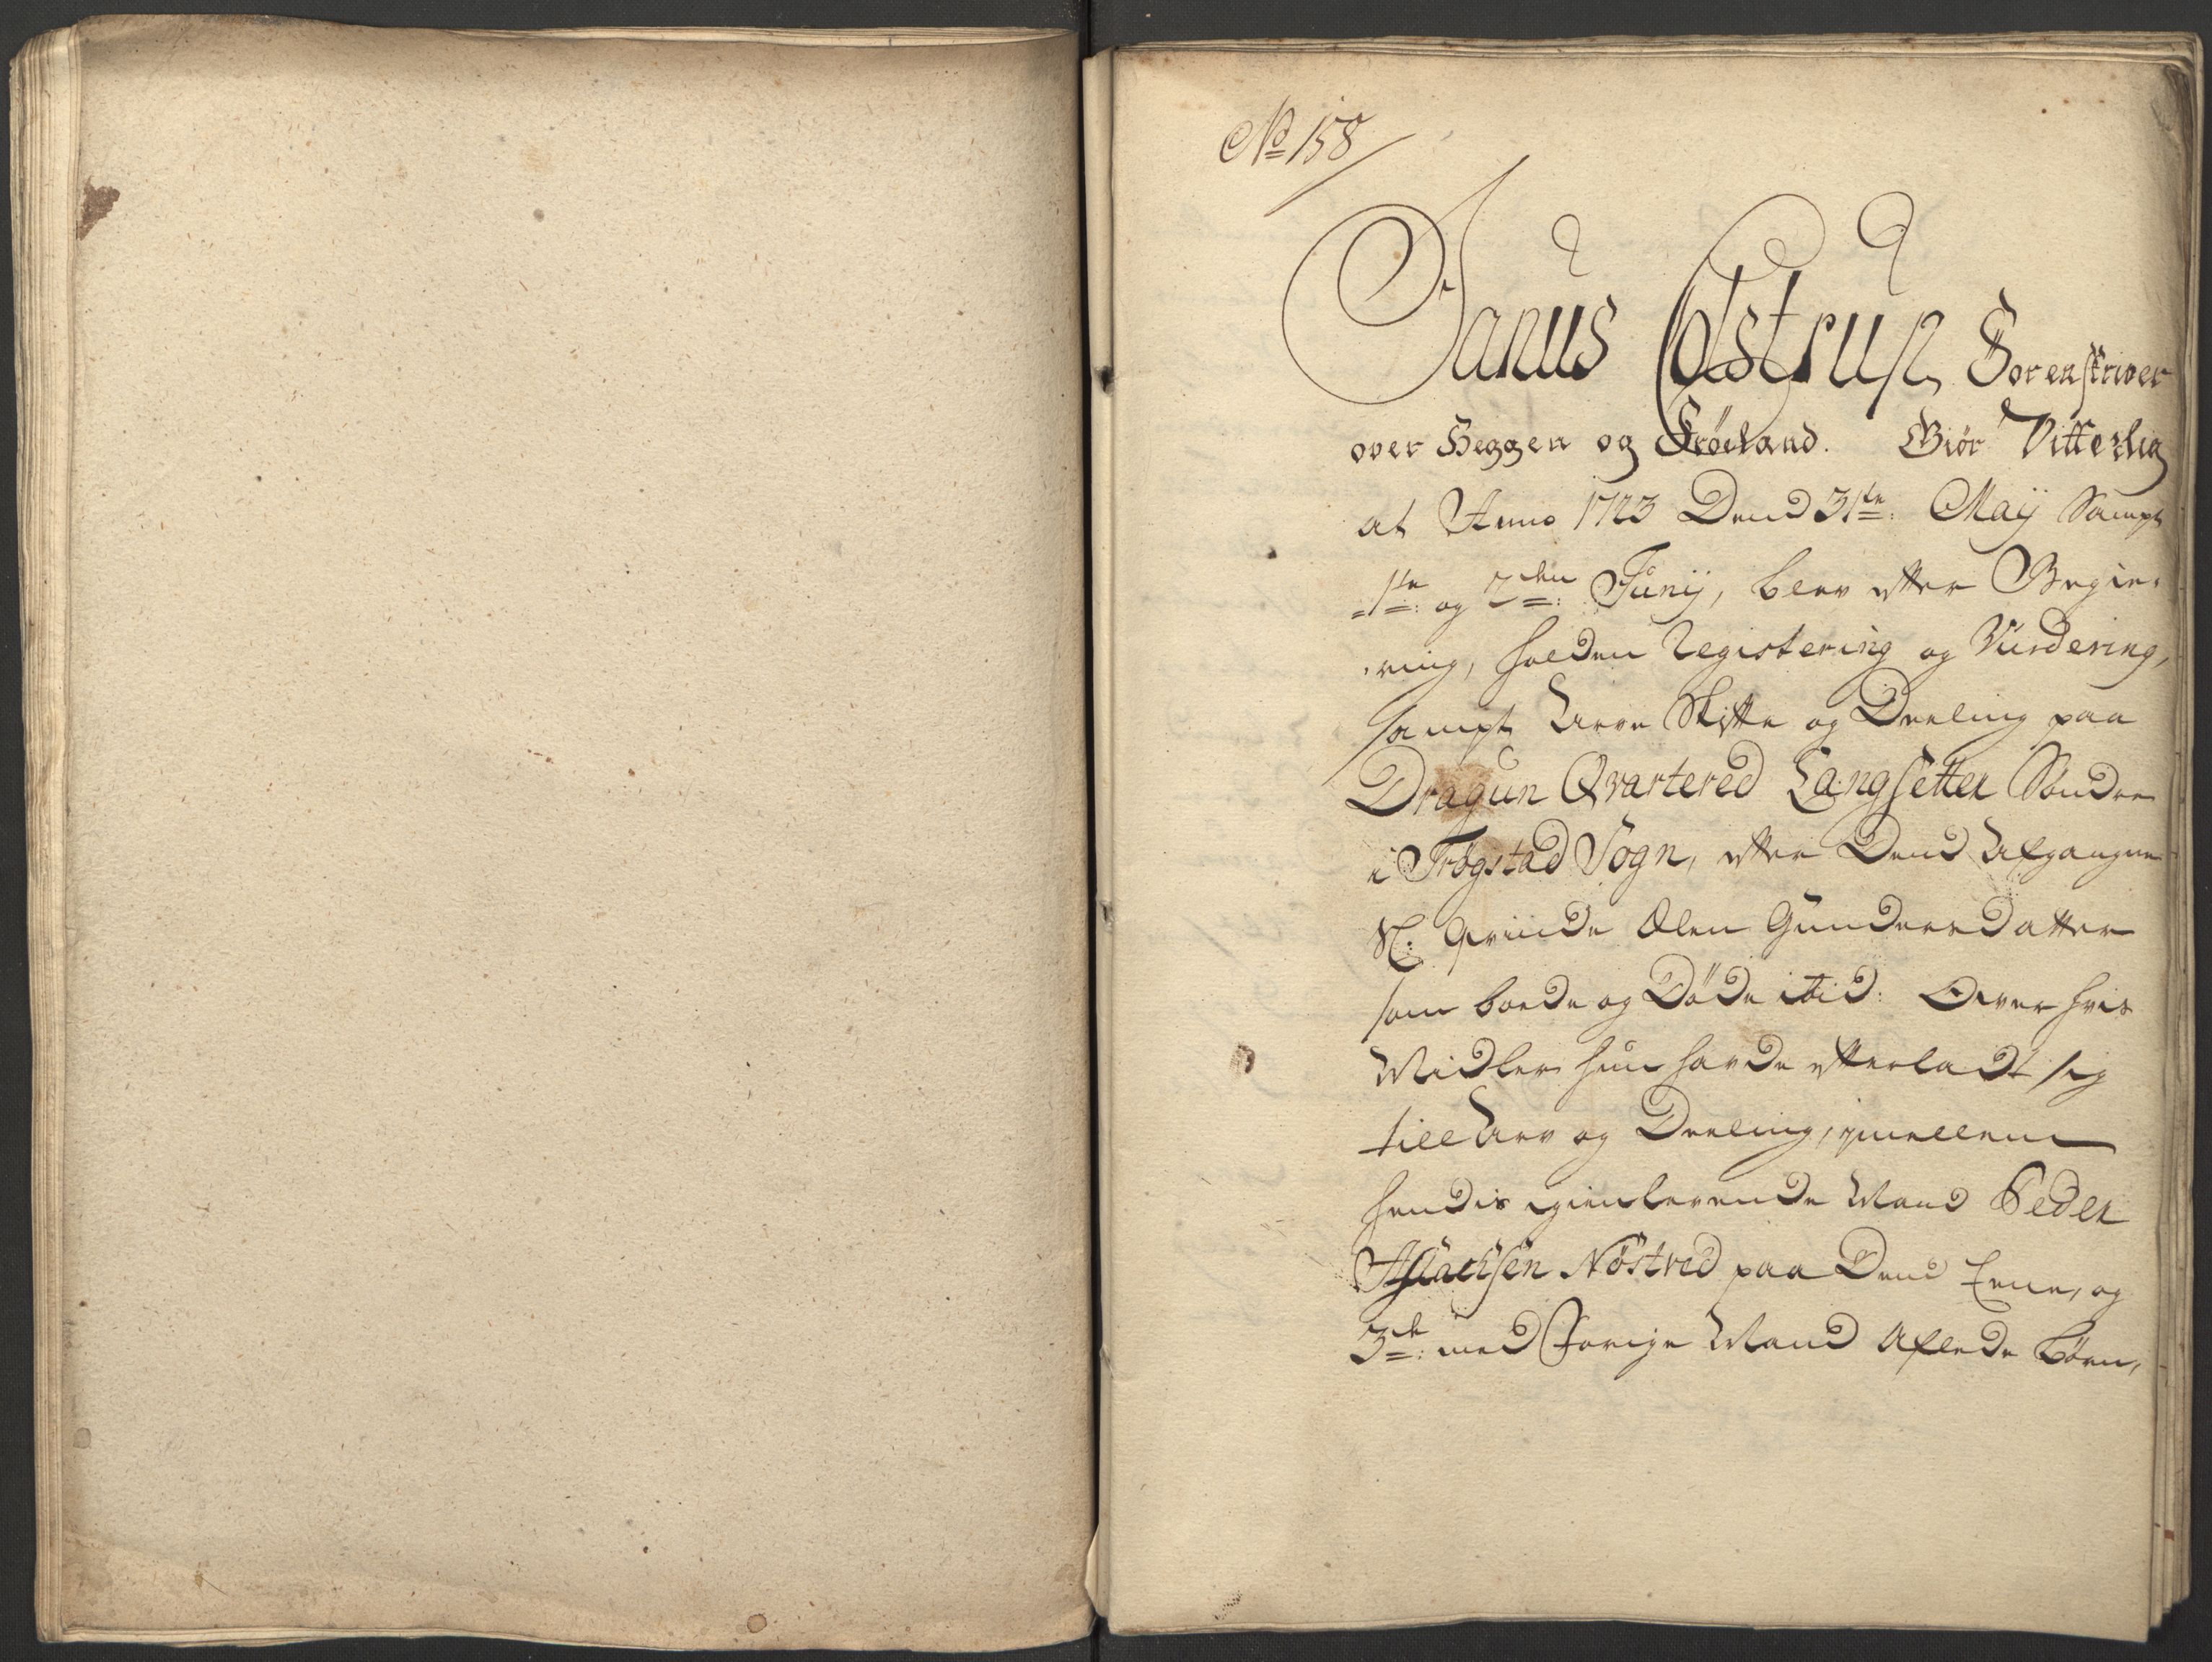 No 158
Janus Østrup Sorenskriver
over Heggen og Frøeland. Giör Vitterlig
at Anno 1723 Dend 31te: Maij Sampt
1te: og 2den: Junij, blev efter Begie-
ring, holden Registering og Vurdering,
sampt Arve Skifte og Deeling paa
Dragun Qvartered Langsetter Søndre
i Trögstad Sogn, efter Dend Afgangne
Sl: Qvinde Olen Gundersdatter
som boede og Döde itid: Over hvis
Midler hun havde efterladt sig
till Arv og Deeling, imellem
hendis igienlevende Mand Peder
Isaachsen Nöstved paa Dend Eene, og
3de: med Forrige Mand Aflede Börn,